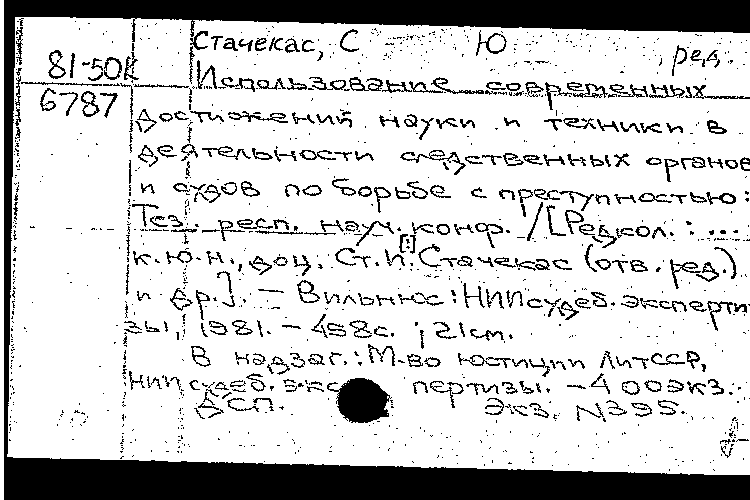 Стачекас, С Ю ред.
81-50К Использование современных
6787 достижений науки и техники в
деятельности следственных органов
и судов по борьбе с преступностью:
Тез. респ. науч. конф. / [Редкол.: ...
к.ю.н., доц. Ст. И. Стачекас (отв. ред.)
и др.]. - Вильнюс: НИИ судеб. эксперти
зы, 1981. - 498с. ; 21см.
В надзаг.: М-во юстиции ЛитССР,
НИИ судеб. экс пертизы. - 400экз.
ДСП. Экз. N395.